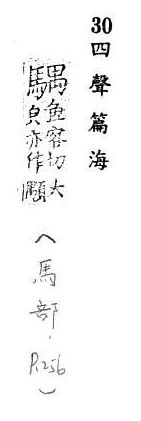 30 四聲篇海
魚容切大
皃亦作顒
(馬部.P.256)